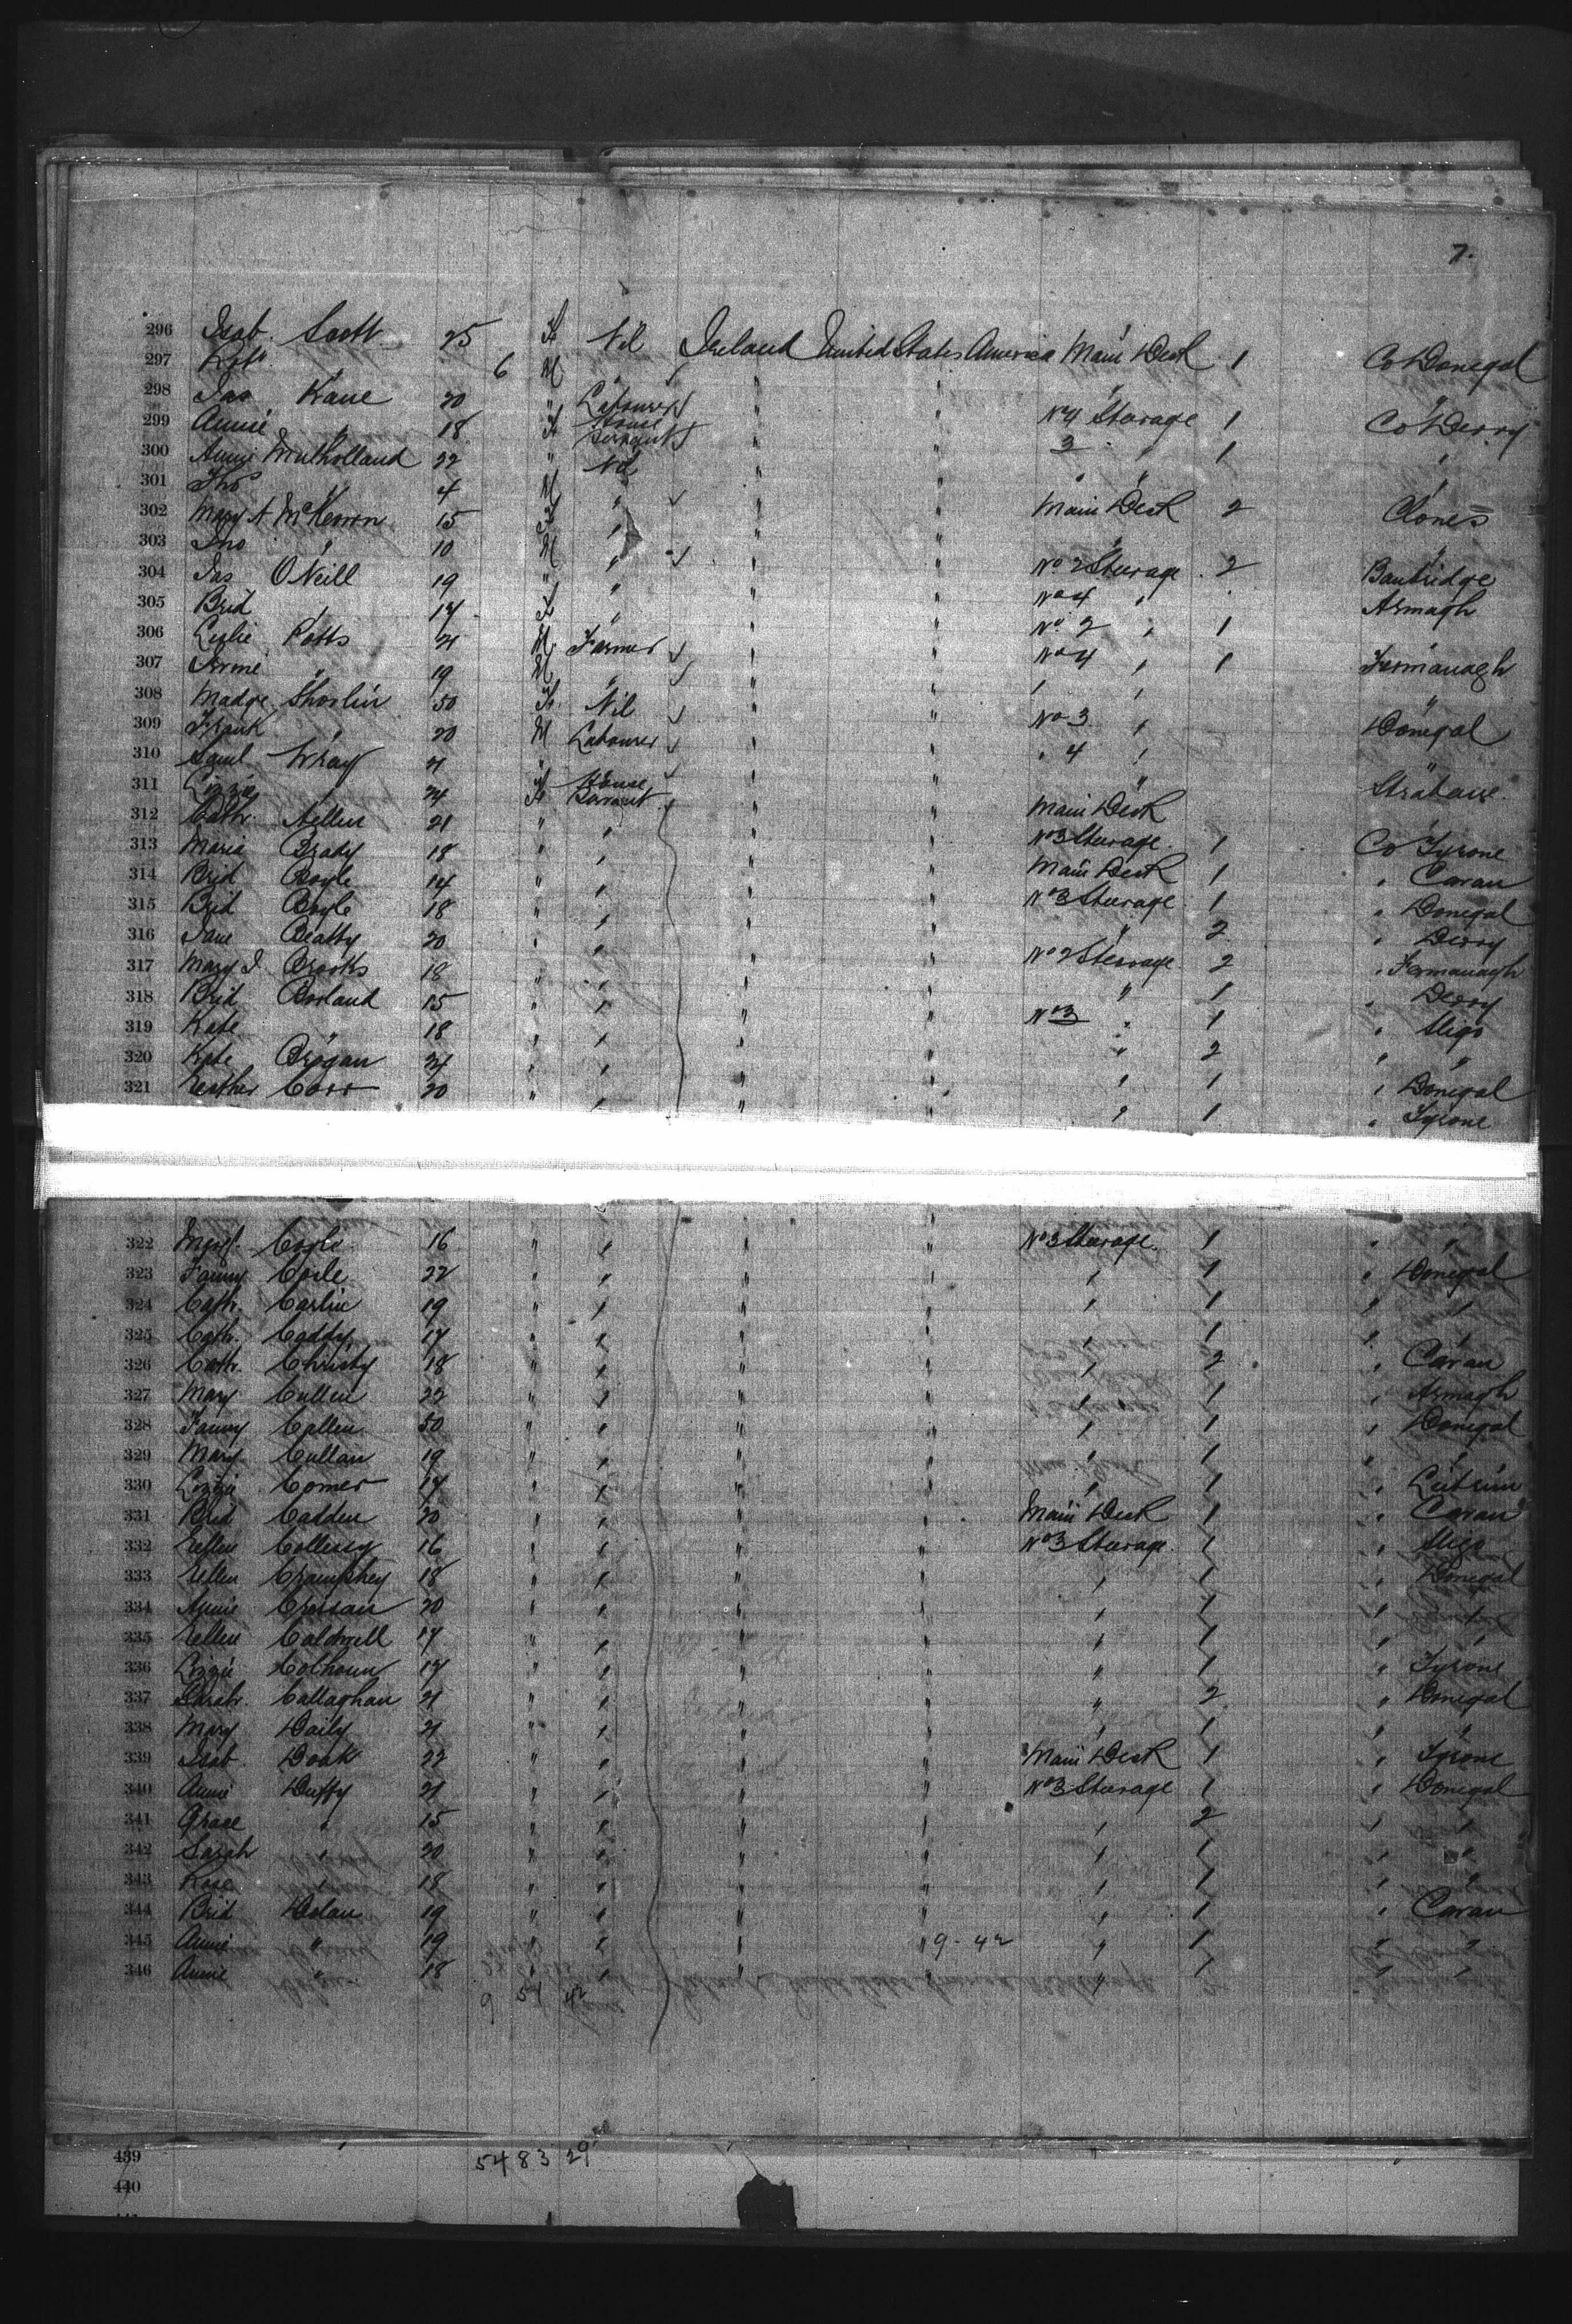 7.
296 Isab. Scott 25 F Nil Ireland United States America Main Deck 1 Co Donegal
297 " 6 M " " " " "
298 Jas Kane 20 " Labourer " " No 4 Sturage 1 Co Derry
299 Annie " 18 F House Servant " " 3 " 1 "
300 Annie Mulholland 22 " Nil " " " " "
301 Thos " 4 M " " " Main Deck 2 Clones
302 Mary A McKeown 15 F " " " " "
303 Jno " 10 M " " " No 2 Sturage 2 Banbridge
304 Jas O'Neill 19 " " " " No 4 " Armagh
305 Brid 17 F " " " No 2 " 1
306 Leslie Potts 21 M Farmer " " No 4 " 1 Fermanagh
307 " 19 M " " " " " "
308 Madge Shorlin 50 F Nil " " No 3 " Donegal
309 Frank " 20 M Labourer " " " 4 " "
310 Saml Wray 21 " " " " Strabane
311 Lizzie 24 F House Servant " " Main Deck
312 Cath. Aellen 21 " " " " No 3 Sturage 1 Co Tyrone
313 Maria Brady 18 " " " " Main Deck 1 " Cavan
314 Brid Boyle 14 " " " " No 3 Sturage 1 " Donegal
315 Brid Boyle 18 " " " " " 2 " Derry
316 Jane Beatty 20 " " " " No 2 Sturage 2 " Fermanagh
317 Mary J. Brooks 18 " " " " " 1 " Derry
318 Brid Borland 15 " " " " No 3 " 1 " Sligo
319 Kate " 18 " " " " " 2 " "
320 Kate Brogan 24 " " " " " 1 " Donegal
321 Esther Corr 20 " " " " " 1 " Tyrone
322 Margt. Coyle 16 " " " " No 3 Sturage 1 " "
323 Fanny Coile 22 " " " " " 1 " Donegal
324 Cath. Carlin 19 " " " " " 1 " "
325 Cath. Caddy 17 " " " " " 1 " "
326 Cath. Christy 18 " " " " " 2 " Cavan
327 Mary Cullen 22 " " " " " 1 " Armagh
328 Fanny Cullen 50 " " " " " 1 " Donegal
329 Mary Cullan 19 " " " " " 1 " "
330 Lizzie Comer 17 " " " " " 1 " Leitrim
331 Brid Cadden 20 " " " " Main Deck 1 " Cavan
332 Ellen Collessy 16 " " " " No 3 Sturage 1 " Sligo
333 Ellen Crampshey 18 " " " " " 1 " Donegal
334 Annie Crossan 20 " " " " " 1 " "
335 Ellen Caldwell 17 " " " " " 1 " "
336 Lizzie Colhoun 17 " " " " " 1 " Tyrone
337 Sarah Callaghan 21 " " " " " 2 " Donegal
338 Mary Daily 21 " " " " " 1 " "
339 Isab Doak 22 " " " " Main Deck 1 " Tyrone
340 Annie Duffy 21 " " " " No 3 Sturage 1 " Donegal
341 Grace " 15 " " " " " 2 " "
342 Sarah " 20 " " " " " 1 " "
343 Rose " 18 " " " " " 1 " "
344 Brid Dolan 19 " " " " " 1 " Cavan
345 Annie " 19 " " " " 9-42 " 1 " "
346 Annie " 18 " " " " " 1 " "
9 54 42
439 54 83 29
440